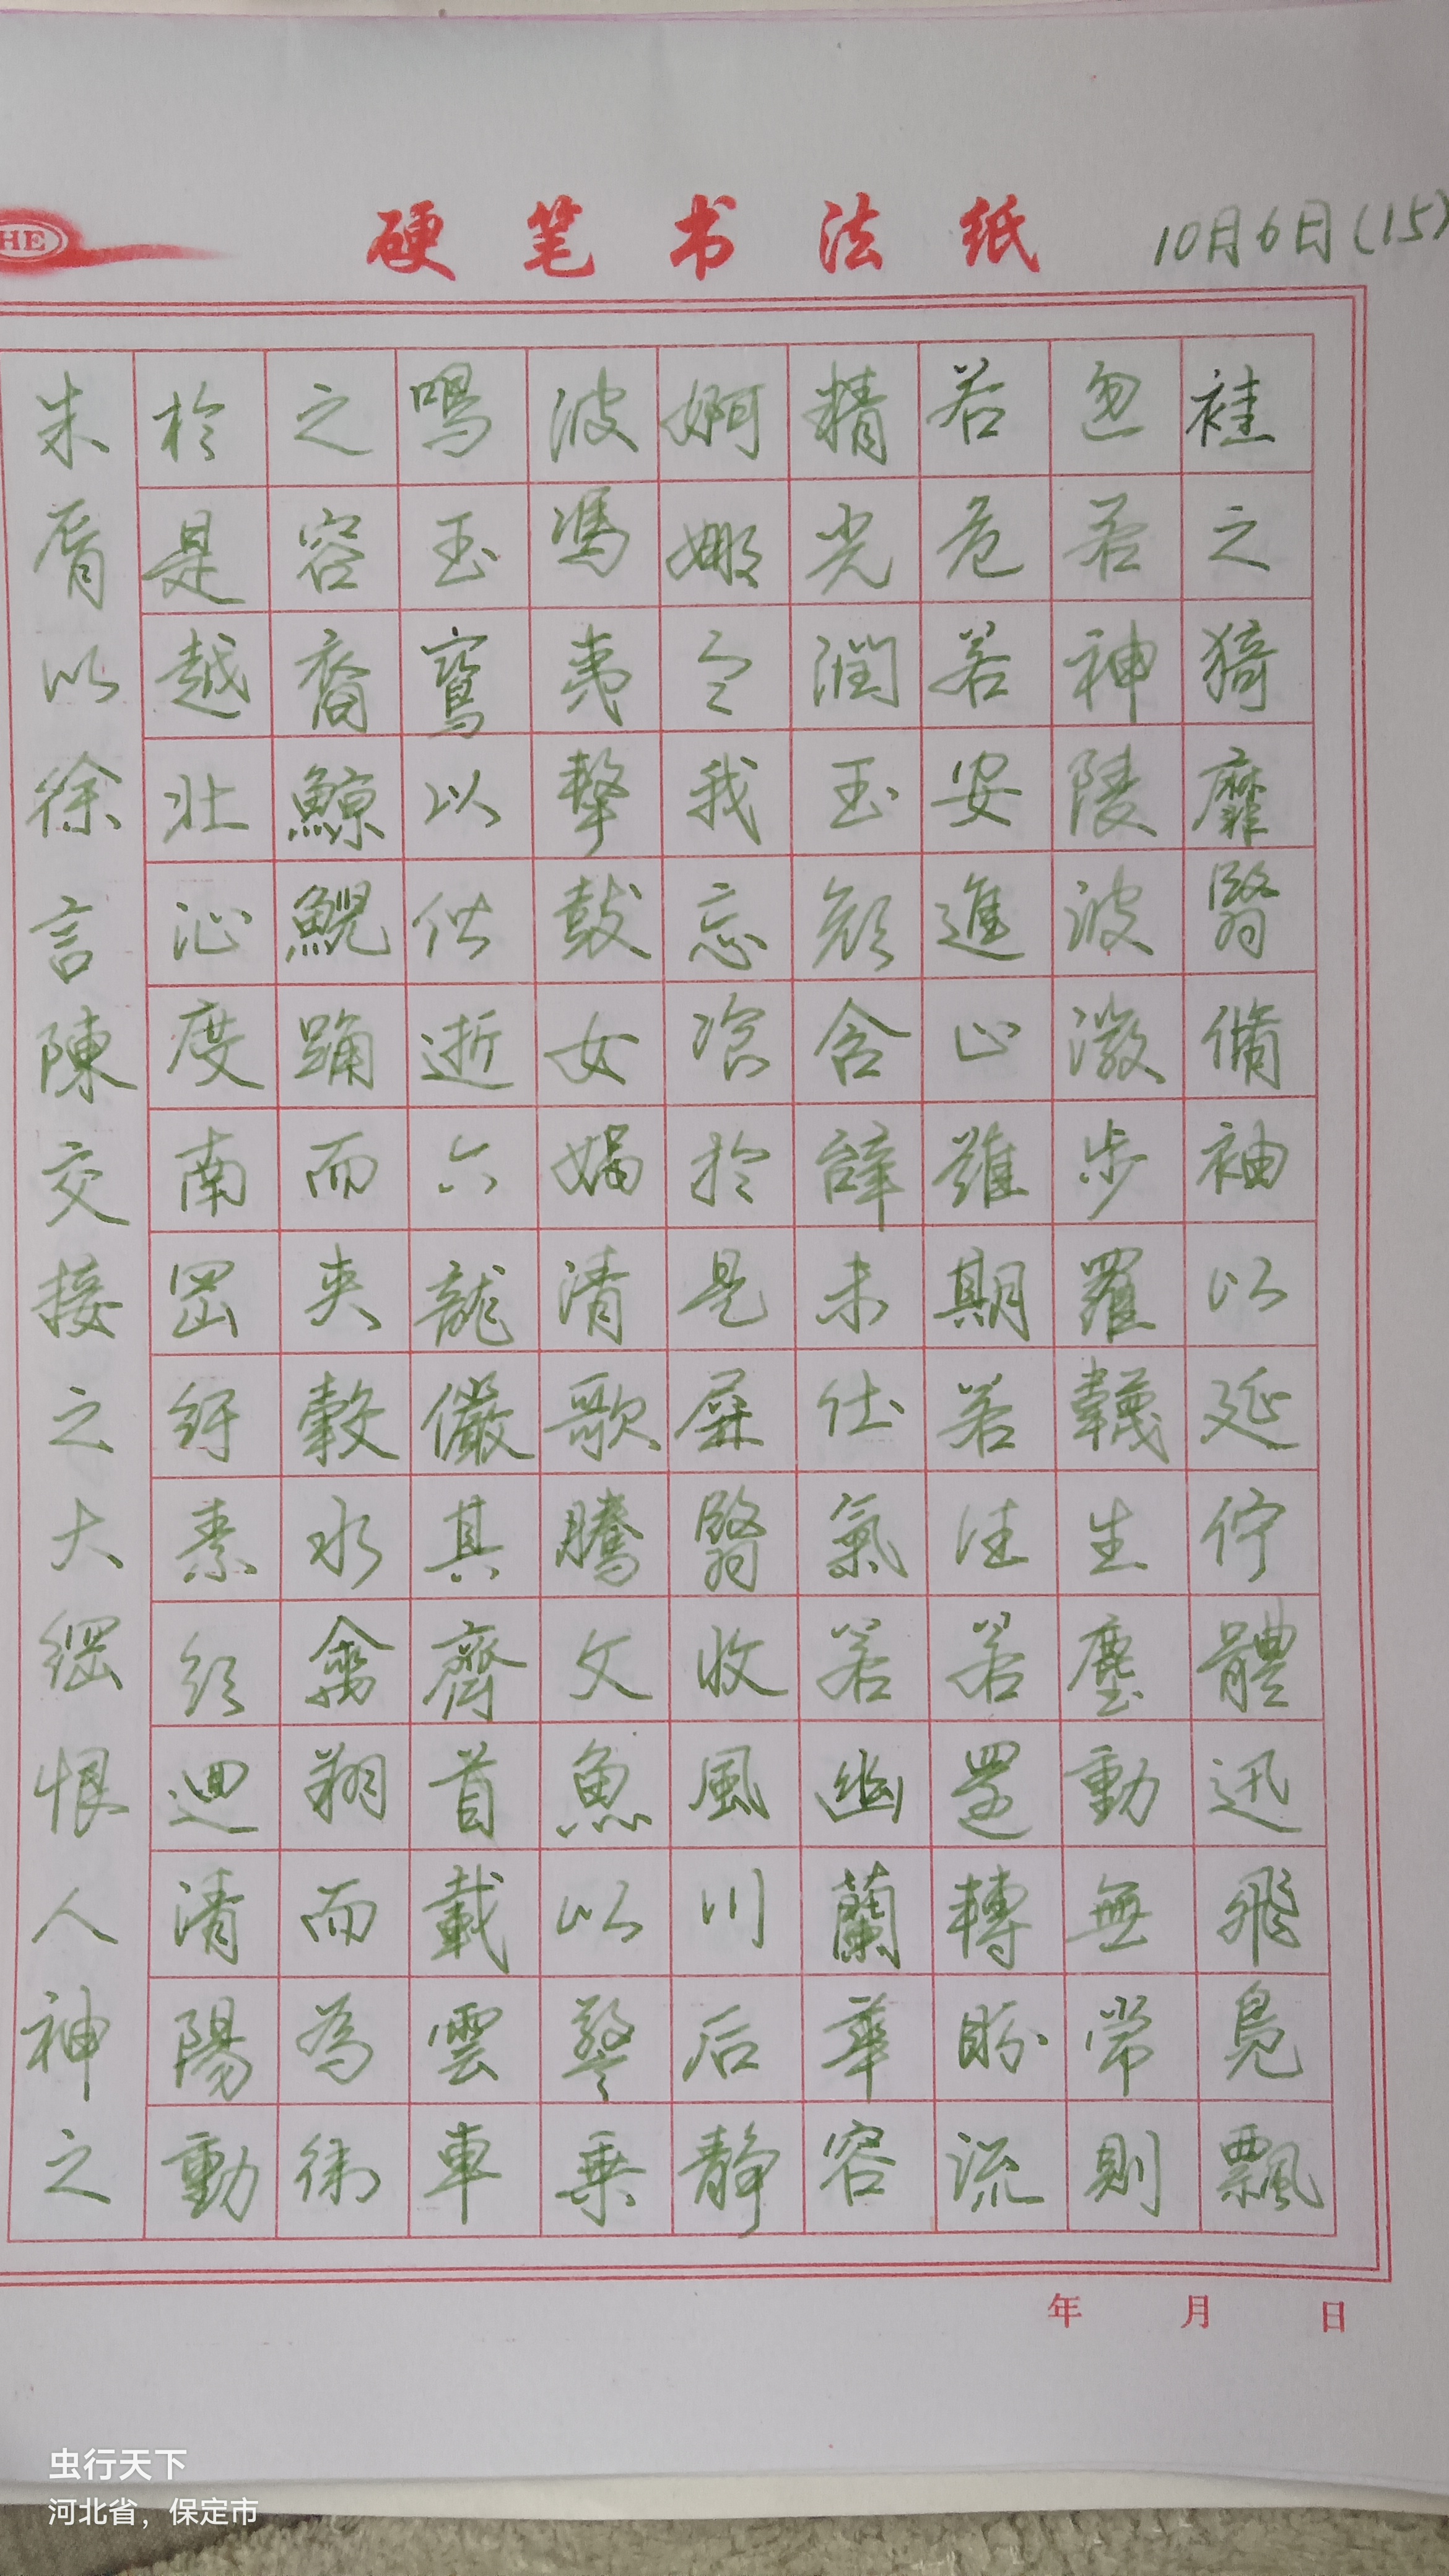 HE
硬笔书法纸
10月6日(15)
袿之猗靡翳脩袖以延佇體迅飛鳧飄
忽若神陵波微步羅韈生塵動無常則
若危若安進止難期若往若還轉眄流
精光潤玉顏含辭未吐氣若幽蘭華容
婀娜令我忘飡於是屏翳收風川后静
波馮夷擊鼓女媧清歌騰文魚以警乗
鳴玉鸞以偕逝六龍儼其齊首載雲車
之容裔鯨鯢踊而夾轂水禽翔而為衛
於是越北沚度南岡紆素領迴清陽動
朱脣以徐言陳交接之大綱恨人神之
年 月 日
虫行天下
河北省，保定市